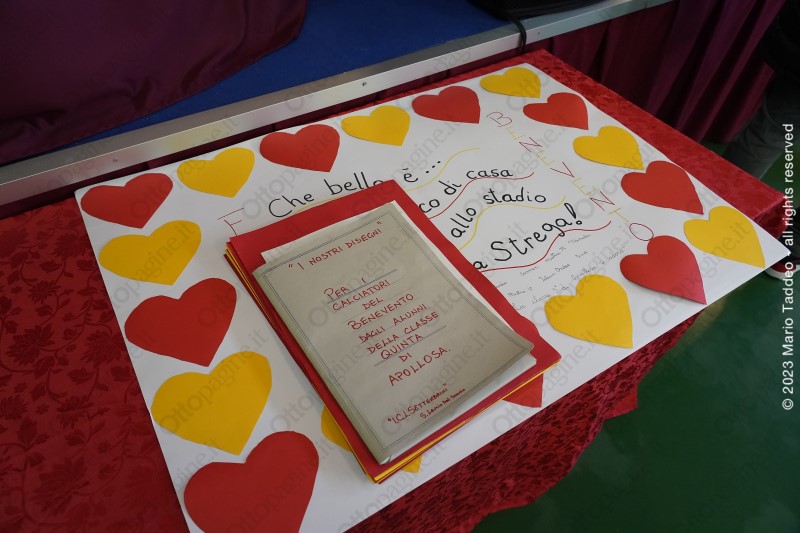 BENEVENTO
F
Che bello è ...
co di casa
allo stadio
a Strega!
"I NOSTRI DISEGNI"
PER I
CALCIATORI
DEL
BENEVENTO
DAGLI ALUNNI
DELLA CLASSE
QUINTA
DI
APOLLOSA.
"I.C. SETTEMBRINI"
Ottopagine.it
© 2023 Mario Taddeo - all rights reserved